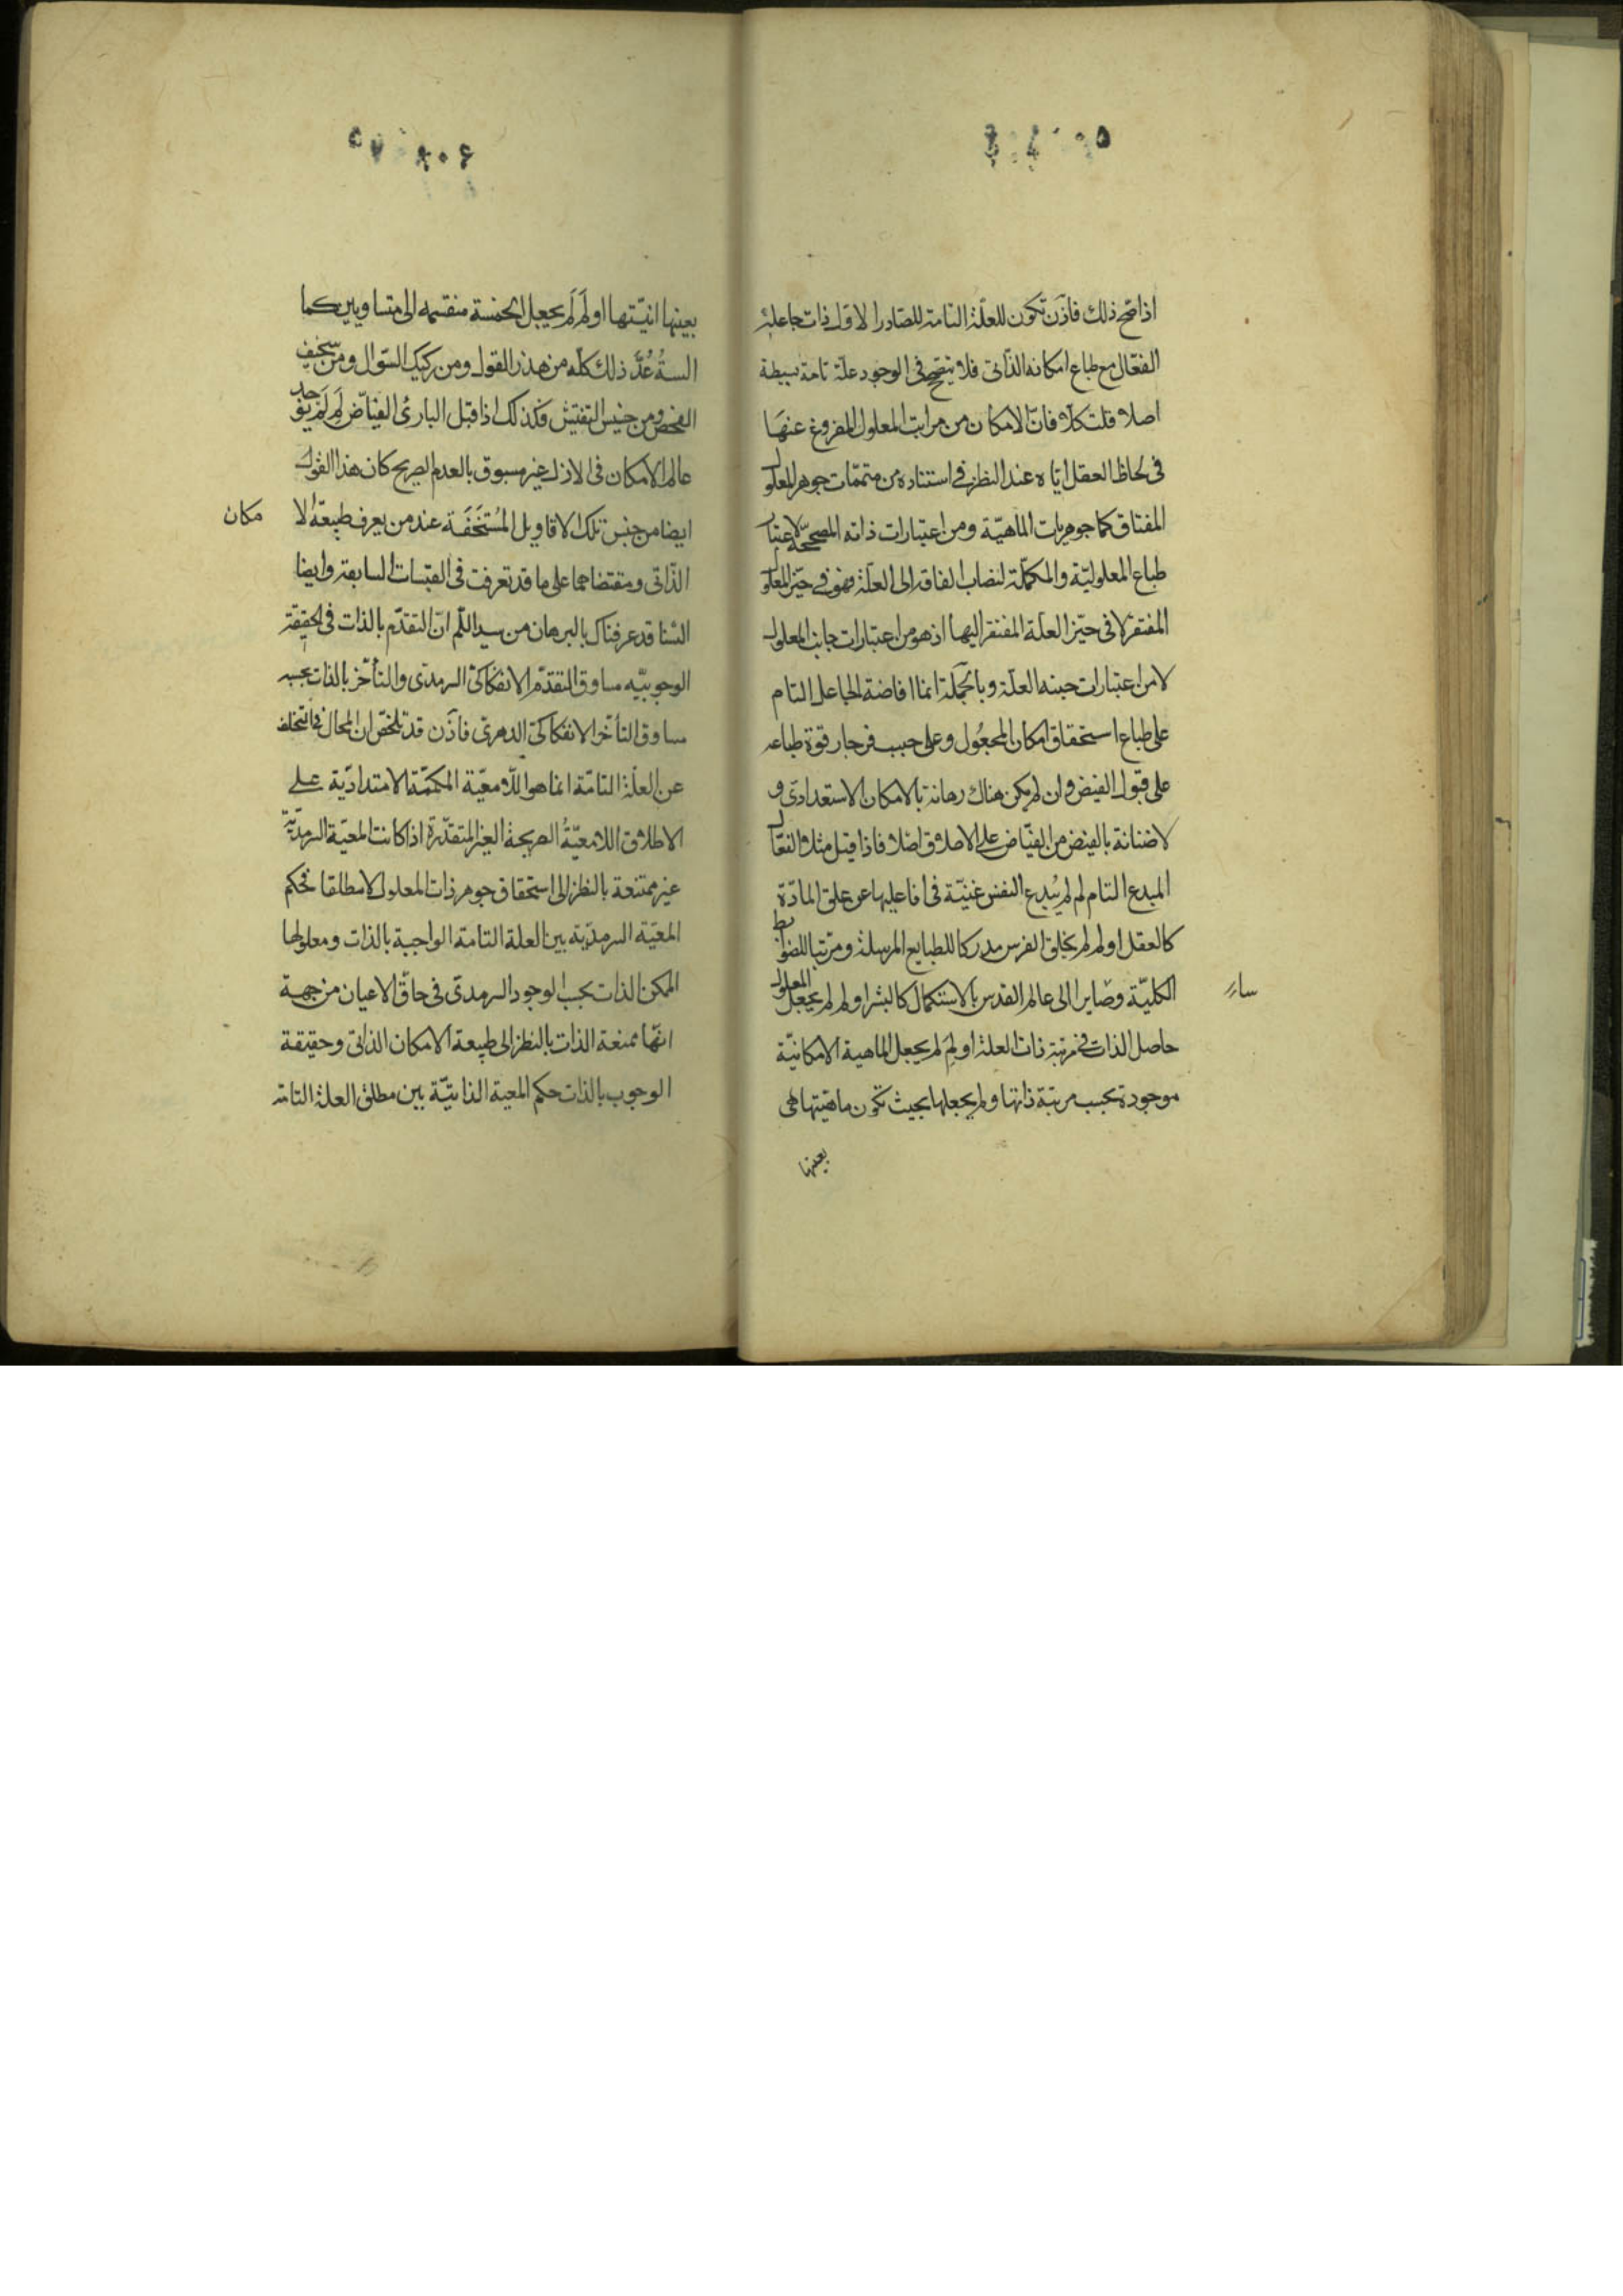 اذا صح ذلك فاذن تكون للعلة التامة للصادر الاول ذات جاعله
الفعال مع طباع امكانه الذاتى فلا يتصحح فى الوجود علة تامة بسيطة
اصلا قلت كلا فان الامكان من مراتب المعلول المفروغ عنها
فى لحاظ العقل اياه عند النظر فى استناده من متممات جوهر المعلول
المفتاق كما جوهريات الماهية ومن اعتبارات ذاته المصححة لاعتبار
طباع المعلولية والمكملة لنصاب الفاقة الى العلة فهو فى حيز المعلول
المفتقر لا فى حيز العلة المفتقر اليها اذ هو من اعتبارات جانب المعلول
لا من اعتبارات جنبه العلة وبالجملة انما افاضة الجاعل التام
على طباع استحقاق امكان المجعول وعلى حسب فرجار قوة طباعه
على قبول الفيض وان لم يكن هناك رهانة بالامكان الاستعدادى و
لا ضنانة بالفيض من الفياض على الاطلاق اصلا فاذا قيل مثلا الفعال
المبدع التام لم لم يبدع النفس غنية فى افاعيلها عن علق المادة
كالعقل او لم لم يخلق الفرس مدركا للطبايع المرسلة ومرتبا للضوابط
الكلية وصايرا الى عالم القدس بالاستكمال كالبشر او لم لم يجعل المعلول
حاصل الذات فى مرتبة ذات العلة او لم لم يجعل الماهية الامكانية
موجودة بحسب مرتبة ذاتها ولم يجعلها بحيث تكون ماهيتها هى
بعينها
بعينها انيتها او لم لم يجعل الخمسة منقسمه الى متساويين كما
الستة عد ذلك كله من هذر القول ومن ركيك السؤال ومن سخيف
الفحص ومن خسيس التفتيش فكذلك اذا قيل البارئ الفياض لم لم يوجد
عالم الامكان فى الازل غير مسبوق بالعدم الصريح كان هذا القول
ايضا من جنس تلك الاقاويل المستخفة عند من يعرف طبيعة الا مكان
الذاتى ومقتضاهما على ما قد تعرفت فى القبسات السابقة وايضا
السنا قد عرفناك بالبرهان من سبيل اللم ان التقدم بالذات فى الحقيقة
الوجوبيه مساوق التقدم الانفكاكى السرمدى والتأخر بالذات بحسبه
مساوق التأخر الانفكاكى الدهرى فاذن قد تلخص ان المحال فى التخلف
عن العلة التامة انما هو اللامعية المكممة الامتدادية على
الاطلاق اللامعية الصريحة الغير المتقدرة اذا كانت المعية السرمدية
غير ممتنعة بالنظر الى استحقاق جوهر ذات المعلول لا مطلقا فحكم
المعية السرمدية بين العلة التامة الواجبة بالذات ومعلولها
الممكن الذات بحسب الوجود السرمدى فى حاق الاعيان من جهة
انها ممتنعة الذات بالنظر الى طبيعة الامكان الذاتى وحقيقة
الوجوب بالذات حكم المعية الذاتية بين مطلق العلة التامة